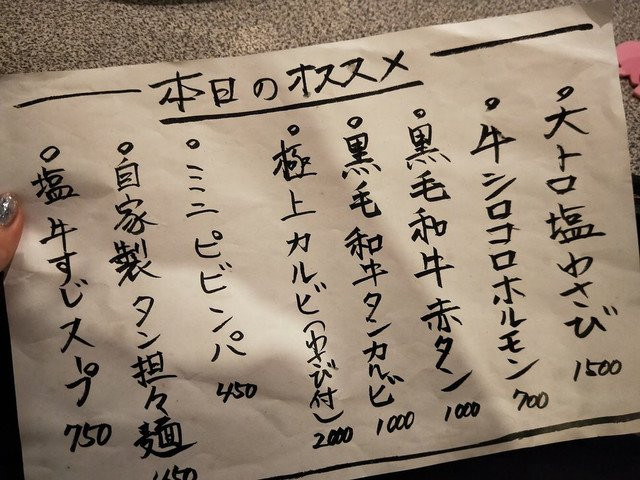 本日のオススメ
○大トロ塩わさび
1500
○牛シロコロホルモン
700
○黒毛和牛赤タン
1000
○黒毛和牛タンカルビ
1000
○極上カルビ(わさび付)
2000
○ミニピビンパ
450
○自家製タン担々麺
○塩牛すじスープ
750